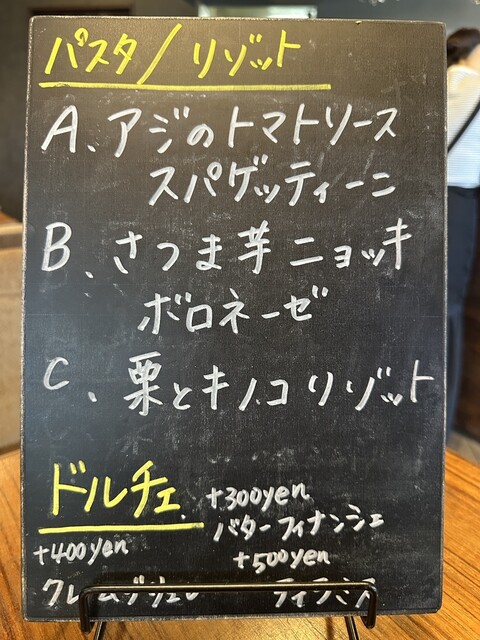 パスタ/リゾット
A、アジのトマトソース
スパゲッティーニ
B、さつま芋ニョッキ
ボロネーゼ
C、栗とキノコリゾット
ドルチェ
+300yen
バターフィナンシェ
+400yen
+500yen
ティラミス